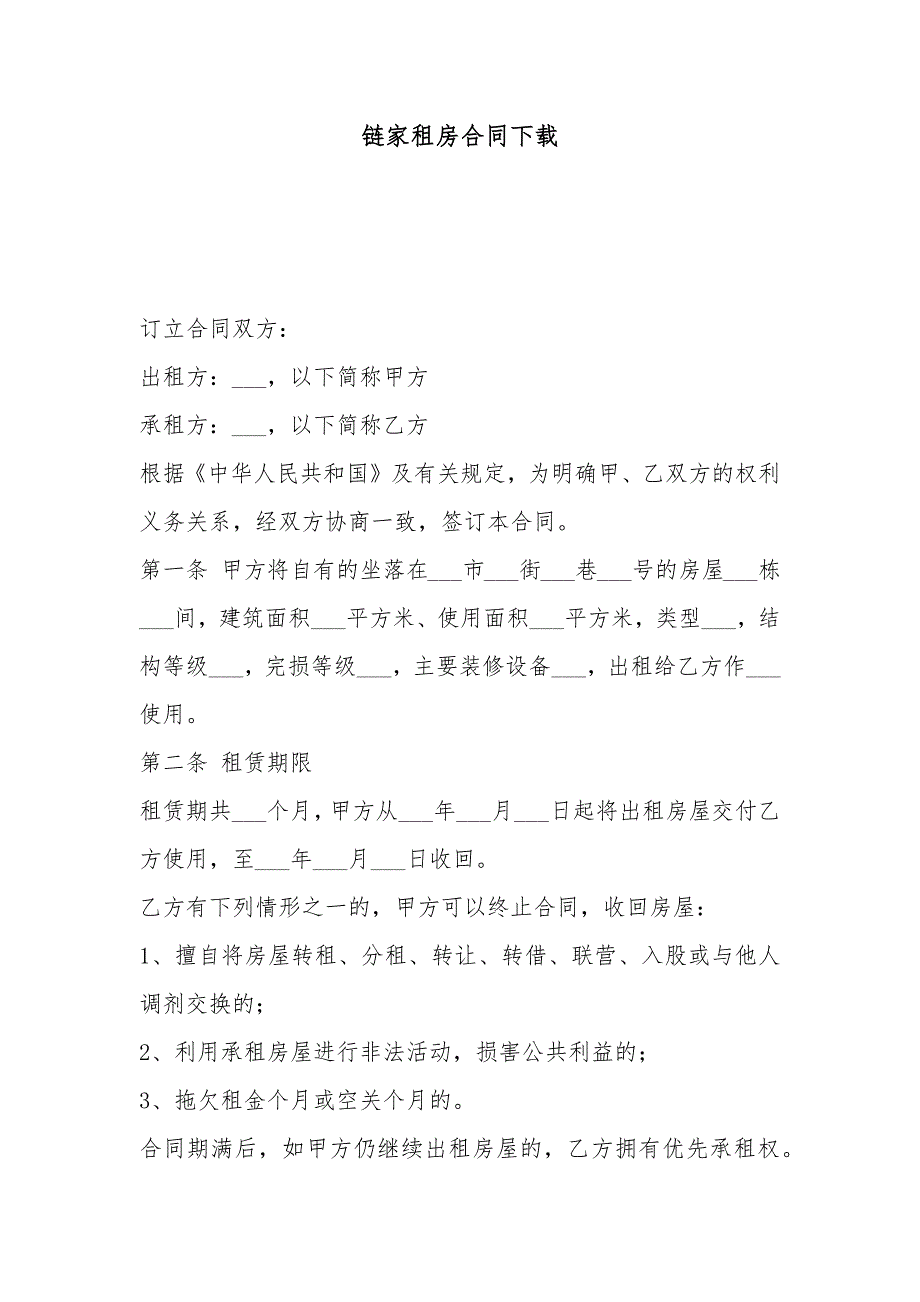 链家租房合同下载
订立合同双方：
出租方：___，以下简称甲方
承租方：___，以下简称乙方
根据《中华人民共和国》及有关规定，为明确甲、乙双方的权利
义务关系，经双方协商一致，签订本合同。
第一条 甲方将自有的坐落在___市___街___巷___号的房屋___栋
___间，建筑面积___平方米、使用面积___平方米，类型___，结
构等级___，完损等级___，主要装修设备___，出租给乙方作___
使用。
第二条 租赁期限
租赁期共___个月，甲方从___年___月___日起将出租房屋交付乙
方使用，至___年___月___日收回。
乙方有下列情形之一的，甲方可以终止合同，收回房屋：
1、擅自将房屋转租、分租、转让、转借、联营、入股或与他人
调剂交换的；
2、利用承租房屋进行非法活动，损害公共利益的；
3、拖欠租金个月或空关个月的。
合同期满后，如甲方仍继续出租房屋的，乙方拥有优先承租权。